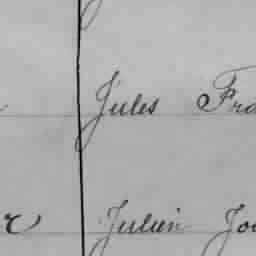 Jules Fra
r Julien Jo